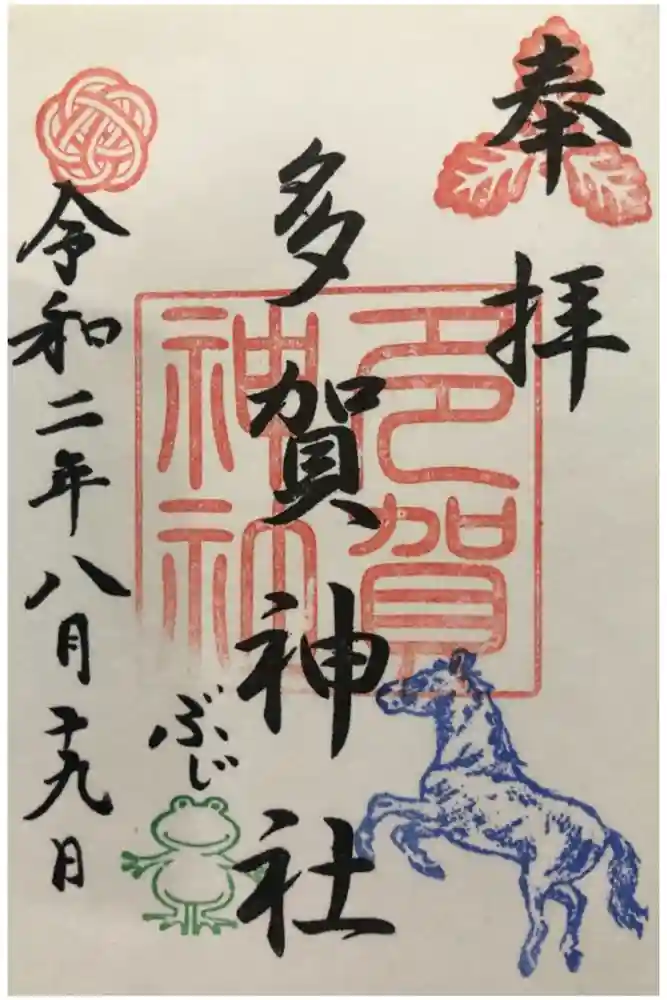 奉拝
多賀神社
多賀
神社
令和二年八月十九日
ぶじ